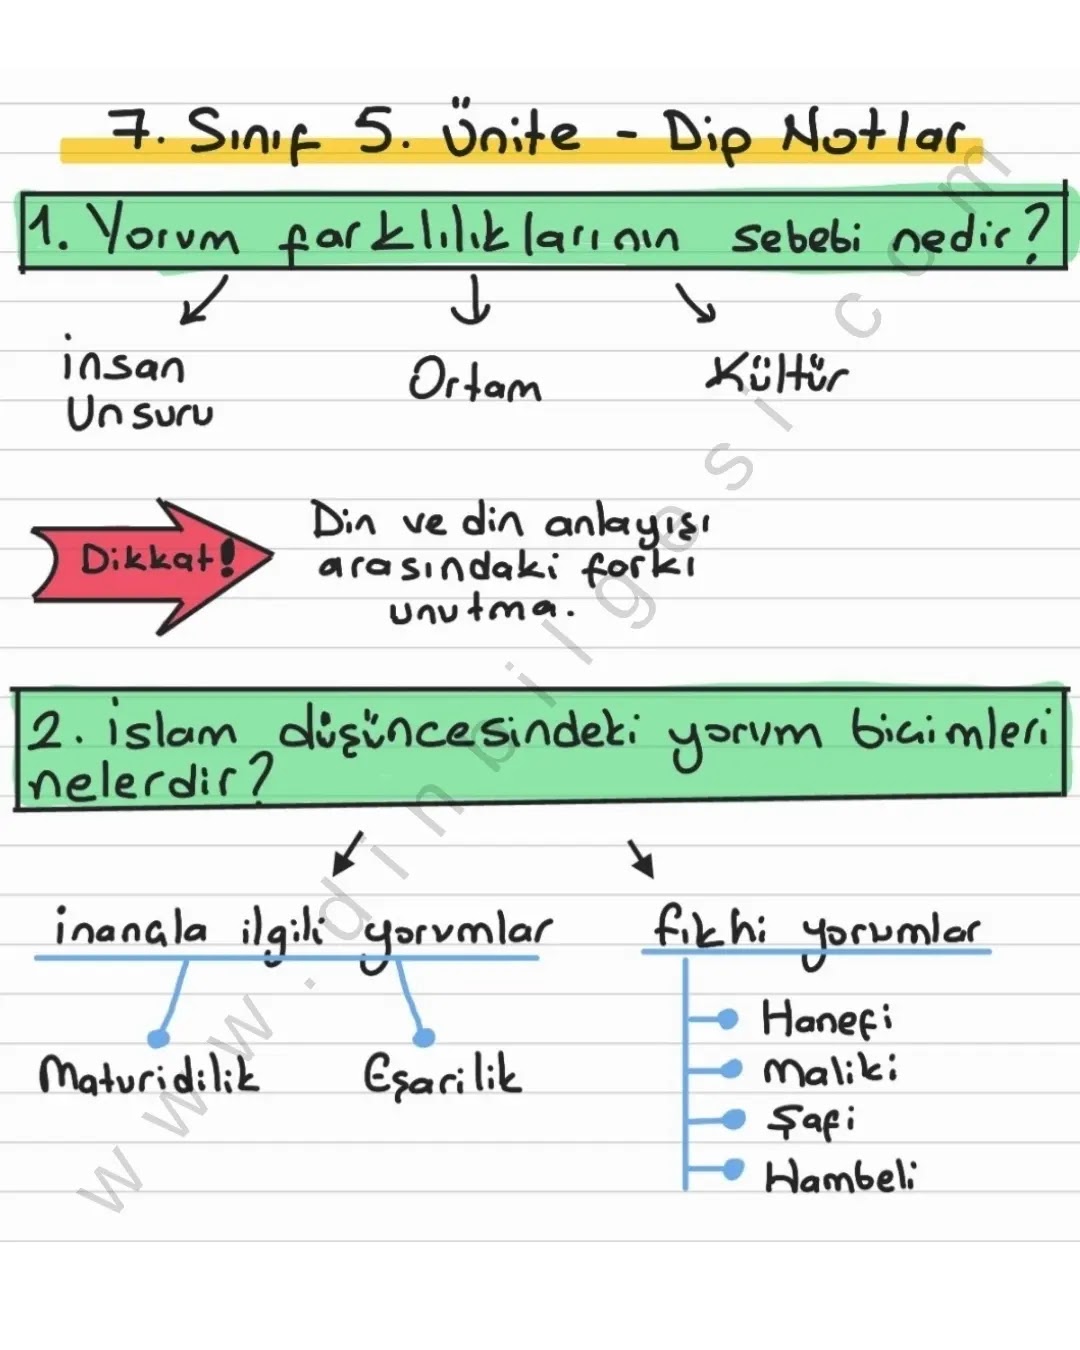 7. Sınıf 5. Ünite - Dip Notlar
1. Yorum farklılıklarının sebebi nedir?
İnsan Unsuru
Ortam
Kültür
Dikkat!
Din ve din anlayışı
arasındaki farkı
unutma.
2. İslam düşüncesindeki yorum biçimleri
nelerdir?
inançla ilgili yorumlar
fıkhi yorumlar
Maturidilik
Eşarilik
Hanefi
Maliki
Şafi
Hambeli
www.dinbilgesi.com